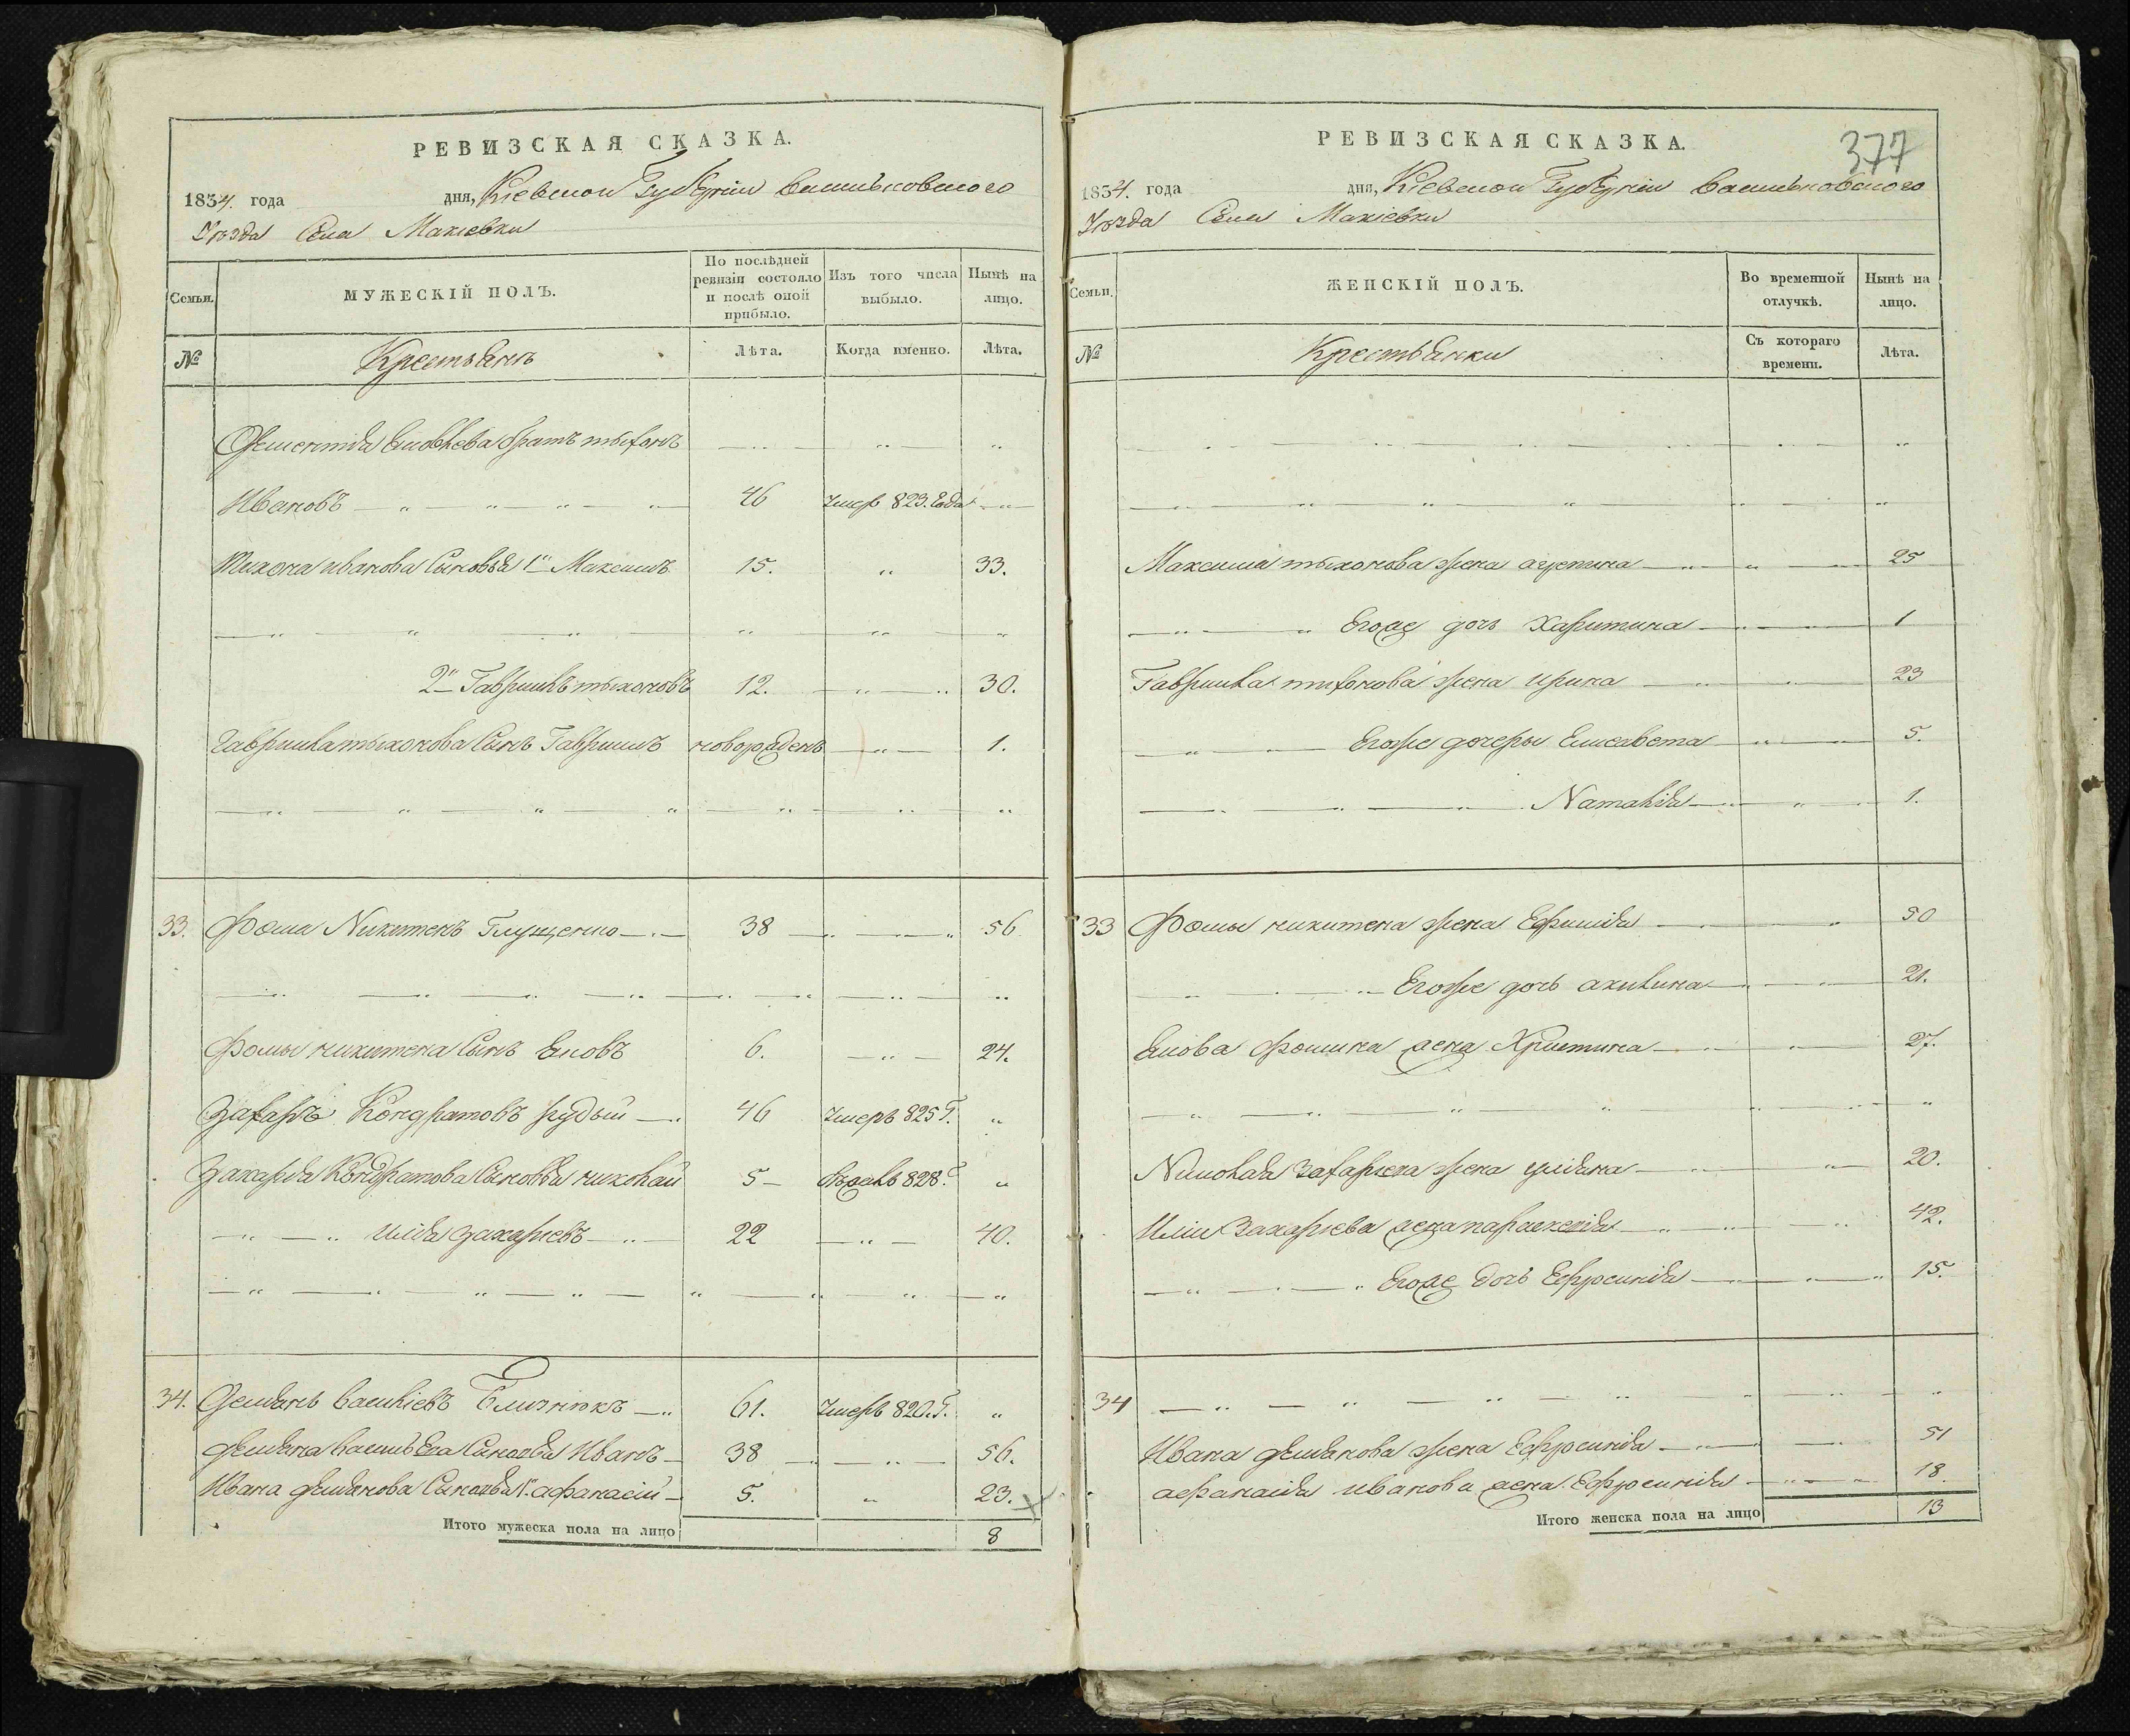 РЕВИЗСКАЯ СКАЗКА.
1834. года дня, Кіевской Губерніи Васильковского
Уезда Села Макіевки
Семьи.
МУЖЕСКІЙ ПОЛЪ.
По послѣдней ревизіи состояло и послѣ оной прибыло.
Изъ того числа выбыло.
Нынѣ на лицо.
№
Крестьянъ
Лѣта.
Когда именно.
Лѣта.
Яковлева братъ тыхонъ
Ивановъ 46 Умеръ 823. Года
Тихона иванова Сыновья 1й Максимъ 15. 33.
2й Гаврилъ тыхоновъ 12. 30.
Гаврила тыхонова Сынъ Гаврилъ новорожденъ 1.
33. Фома Никитенъ Глущенко 38 56
Фомы никитена Сынъ Яковъ 6. 24.
Захаръ Кондратовъ рудый 46 Умеръ 825 Г.
Захарья Кондратова Сыновья николай 5 828. Г
илья захаріевъ 22 40.
34. Демьянъ Василіевъ Близнюкъ 61. Умеръ 820. Г.
Демьяна Сыновья Иванъ 38 56.
Ивана демьянова Сыновья 1й афанасій 5. 23.
Итого мужеска пола на лицо 8
377
РЕВИЗСКАЯ СКАЗКА.
1834. года дня, Кіевской Губерніи Васильковского
Уезда Села Макіевки
Семьи.
ЖЕНСКІЙ ПОЛЪ.
Во временной отлучкѣ.
Нынѣ на лицо.
№
Крестьянки
Съ котораго времени.
Лѣта.
Максима тыхонова жена 25
Егоже дочь Харитина 1
Гаврила тихонова жена ирина 23
Егоже дочеры Елисавета 5.
Наталия 1.
33 Фомы никитена жена Ефимія 50
Егоже дочь акилина 21.
Якова фомина жена Христина 27.
Николая захарьева жена уліяна 20.
Иліи Захаріева жена параскевія 42.
Егоже дочь Ефросинія 15.
34
Ивана демьянова жена Ефросинія 51
афанасія иванова жена Ефросинія 18.
Итого женска пола на лицо 13